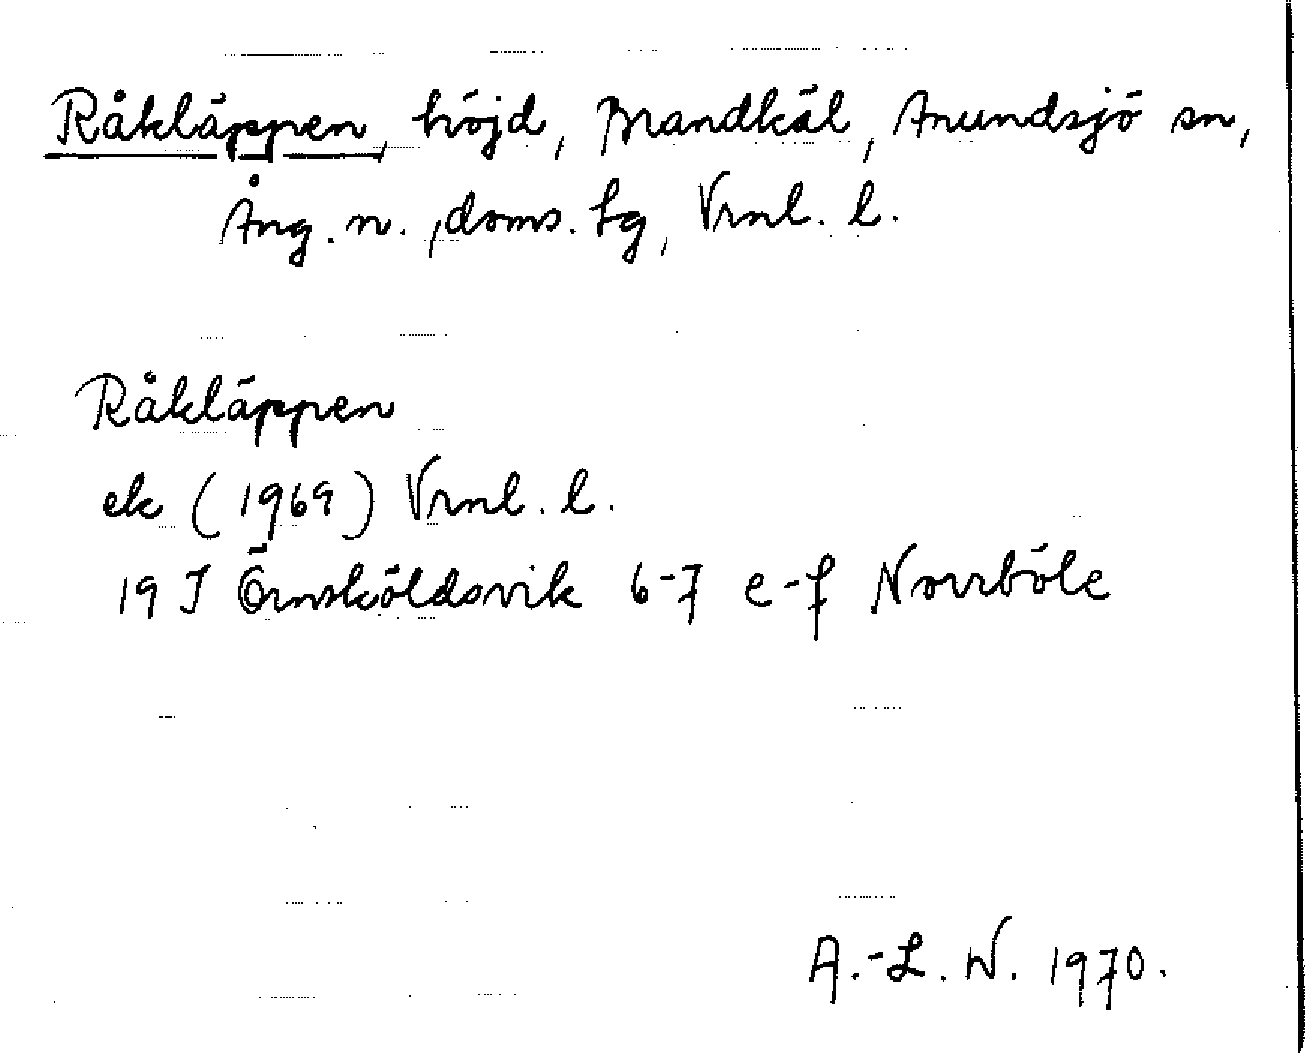 Råkläppen, höjd, Brandkäl, Anundsjö sn,
Ång. n., doms. tg, Vrnl. l.
Råkläppen
ek (1969) Vrnl. l.
19 J Örnsköldsvik 6-7 e-f Norrböle
A.-L. W. 1970.